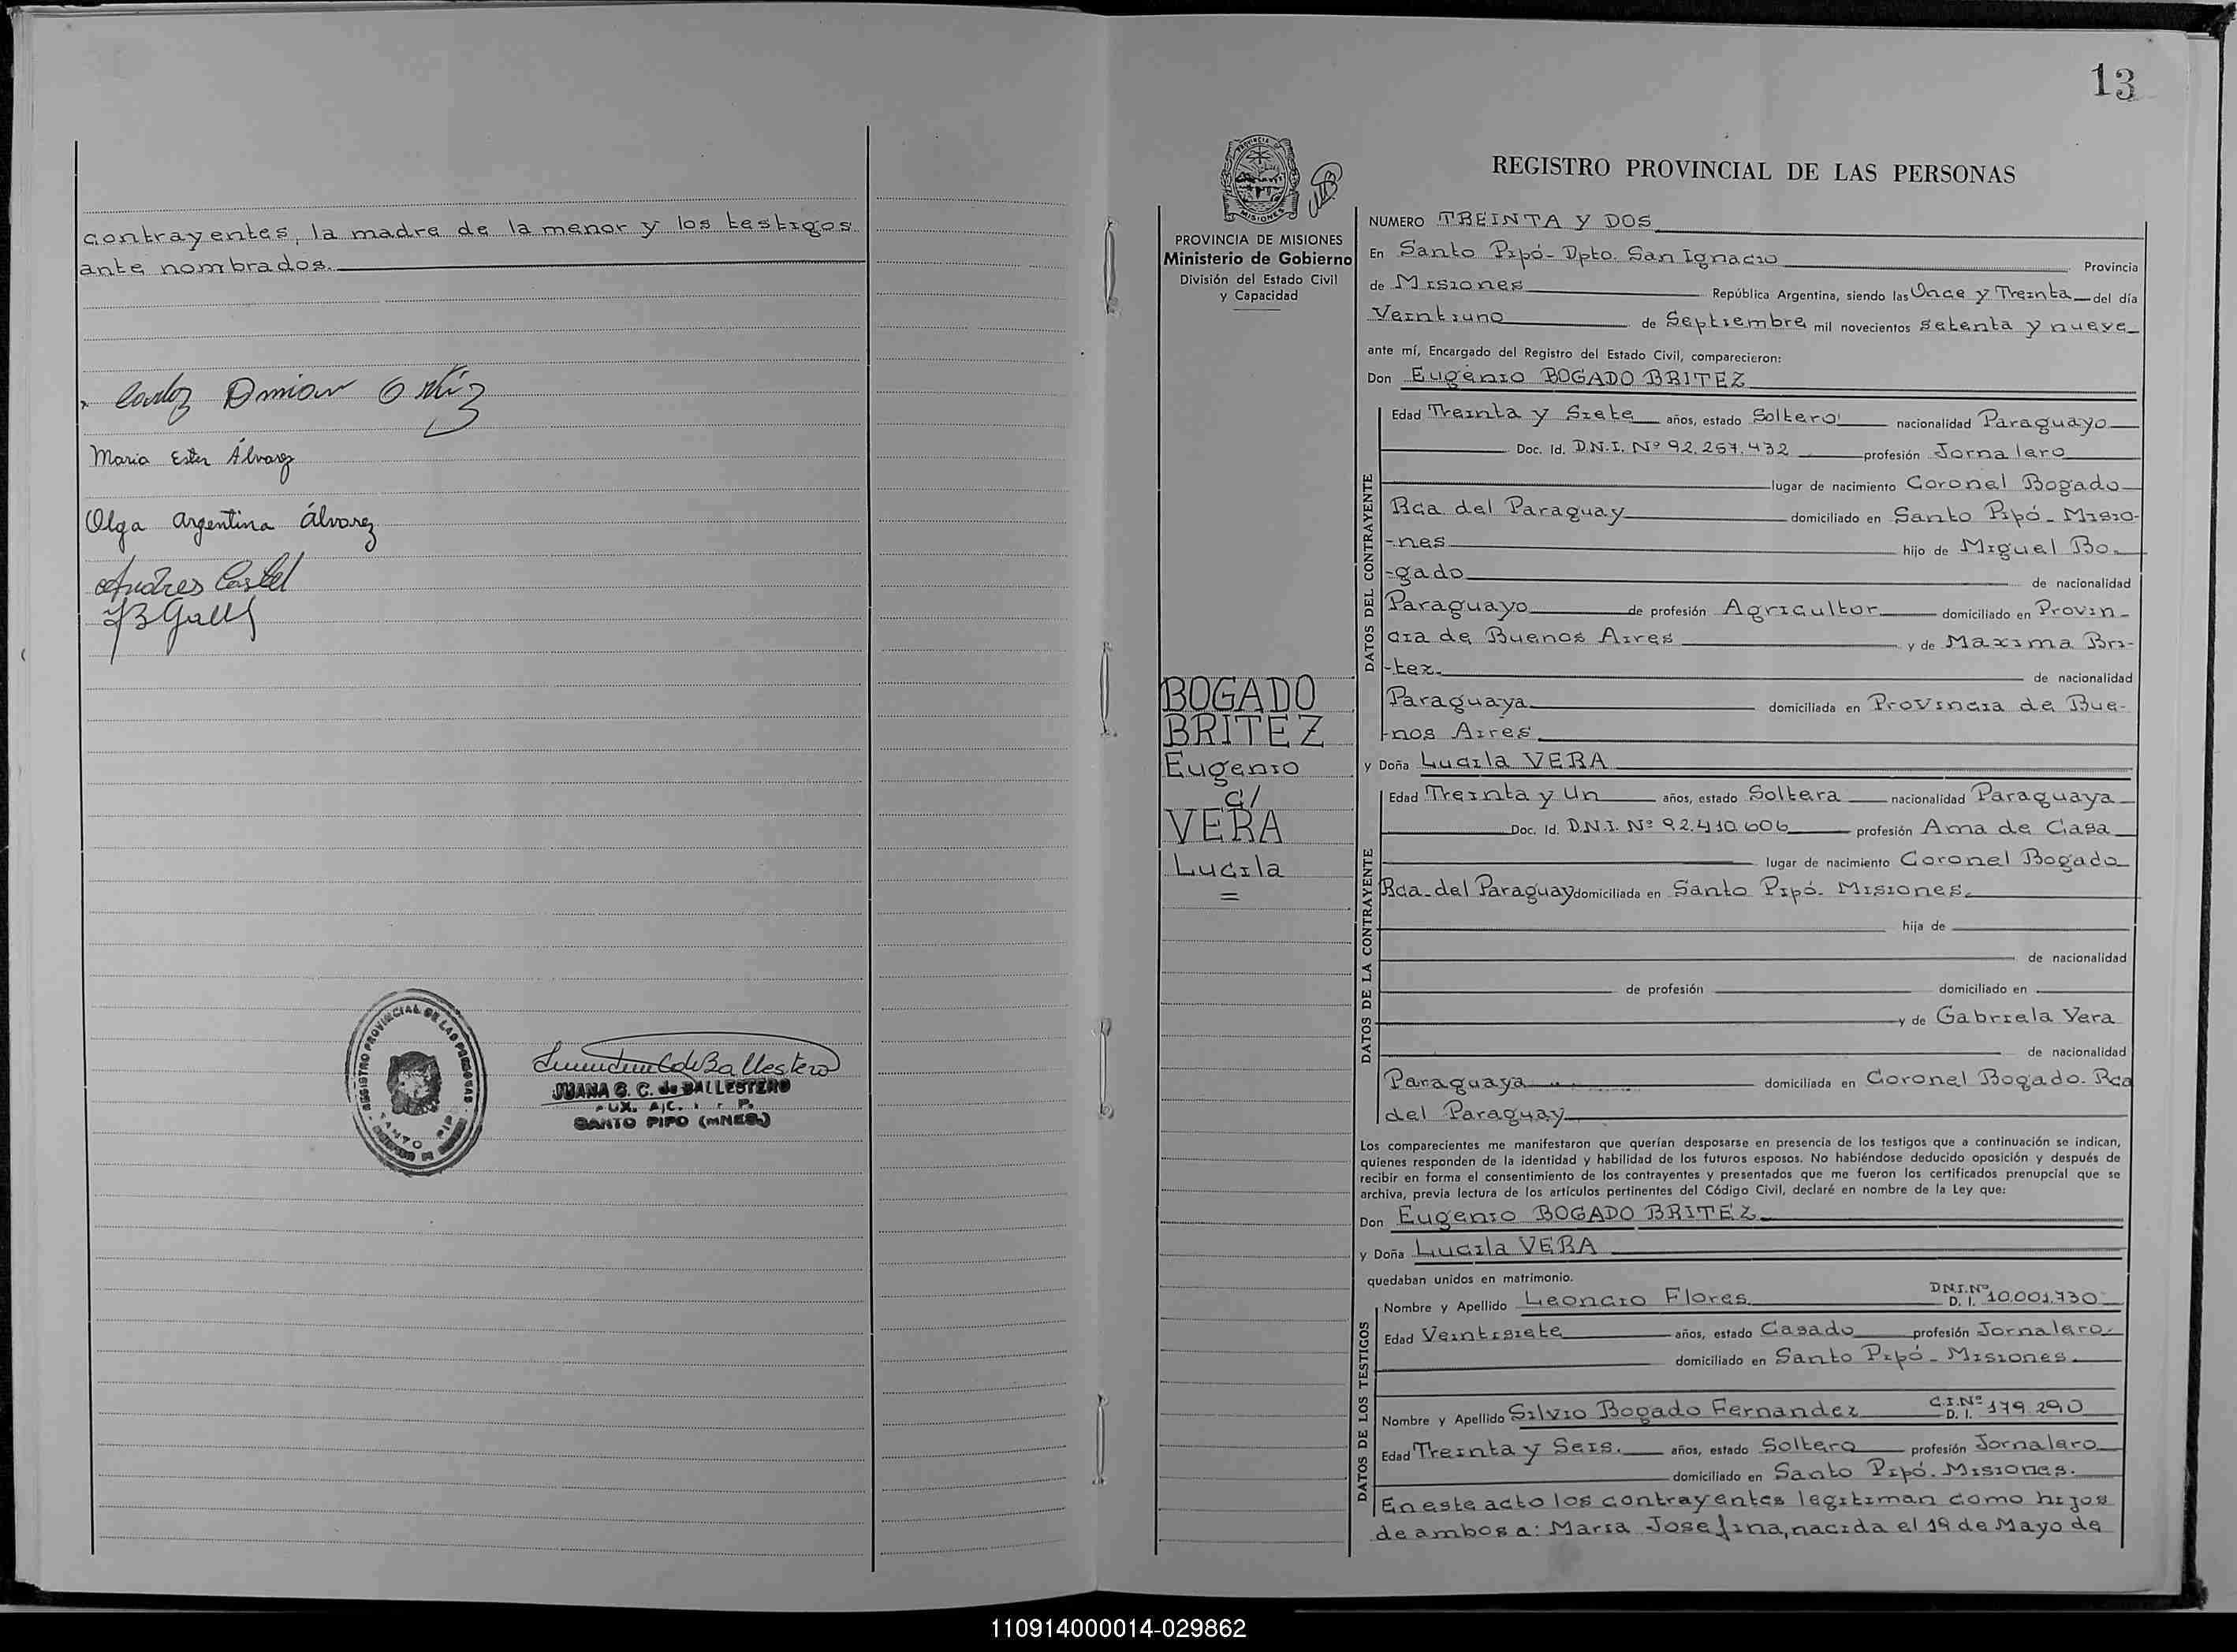 contrayentes, la madre de la menor y los testigos
ante nombrados.
Maria Ester Álvarez
Olga Argentina Álvarez
Andres Castel
REGISTRO PROVINCIAL DE LAS PERSONAS
SANTO PIPO
JUANA G. C. de BALLESTERO
SANTO PIPO (MNES.)
13
PROVINCIA DE MISIONES
Ministerio de Gobierno
División del Estado Civil
y Capacidad
BOGADO
BRITEZ
Eugenio
c/
VERA
Lucila
=
REGISTRO PROVINCIAL DE LAS PERSONAS
NUMERO TREINTA Y DOS
En Santo Pipó - Dpto. San Ignacio Provincia
de Misiones República Argentina, siendo las Once y Treinta del día
Veintiuno de Septiembre mil novecientos setenta y nueve
ante mí, Encargado del Registro del Estado Civil, comparecieron:
Don Eugenio BOGADO BRITEZ
DATOS DEL CONTRAYENTE
Edad Treinta y Siete años, estado Soltero nacionalidad Paraguayo
Doc. Id. D.N.I. Nº 92.267.432 profesión Jornalero
lugar de nacimiento Coronel Bogado
Rca. del Paraguay domiciliado en Santo Pipó - Misio-
-nes hijo de Miguel Bo-
-gado de nacionalidad
Paraguayo de profesión Agricultor domiciliado en Provin-
cia de Buenos Aires y de Maxima Bri-
-tez. de nacionalidad
Paraguaya domiciliada en Provincia de Bue-
-nos Aires
y Doña Lucila VERA
DATOS DE LA CONTRAYENTE
Edad Treinta y Un años, estado Soltera nacionalidad Paraguaya
Doc. Id. D.N.I. Nº 92.410.606 profesión Ama de Casa
lugar de nacimiento Coronel Bogado
Rca. del Paraguay domiciliada en Santo Pipó - Misiones.
hija de
de nacionalidad
de profesión domiciliado en
y de Gabriela Vera
de nacionalidad
Paraguaya domiciliada en Coronel Bogado. Rca
del Paraguay
Los comparecientes me manifestaron que querían desposarse en presencia de los testigos que a continuación se indican,
quienes responden de la identidad y habilidad de los futuros esposos. No habiéndose deducido oposición y después de
recibir en forma el consentimiento de los contrayentes y presentados que me fueron los certificados prenupcial que se
archiva, previa lectura de los artículos pertinentes del Código Civil, declaré en nombre de la Ley que:
Don Eugenio BOGADO BRITEZ
y Doña Lucila VERA
quedaban unidos en matrimonio.
DATOS DE LOS TESTIGOS
Nombre y Apellido Leoncio Flores D.N.I. Nº D. I. 10.001.730
Edad Veintisiete años, estado Casado profesión Jornalero.
domiciliado en Santo Pipó - Misiones.
Nombre y Apellido Silvio Bogado Fernandez C.I. Nº D. I. 179.290
Edad Treinta y Seis. años, estado Soltero profesión Jornalero
domiciliado en Santo Pipó. Misiones.
En este acto los contrayentes legitiman como hijos
de ambos a: Maria Josefina, nacida el 19 de Mayo de
110914000014-029862